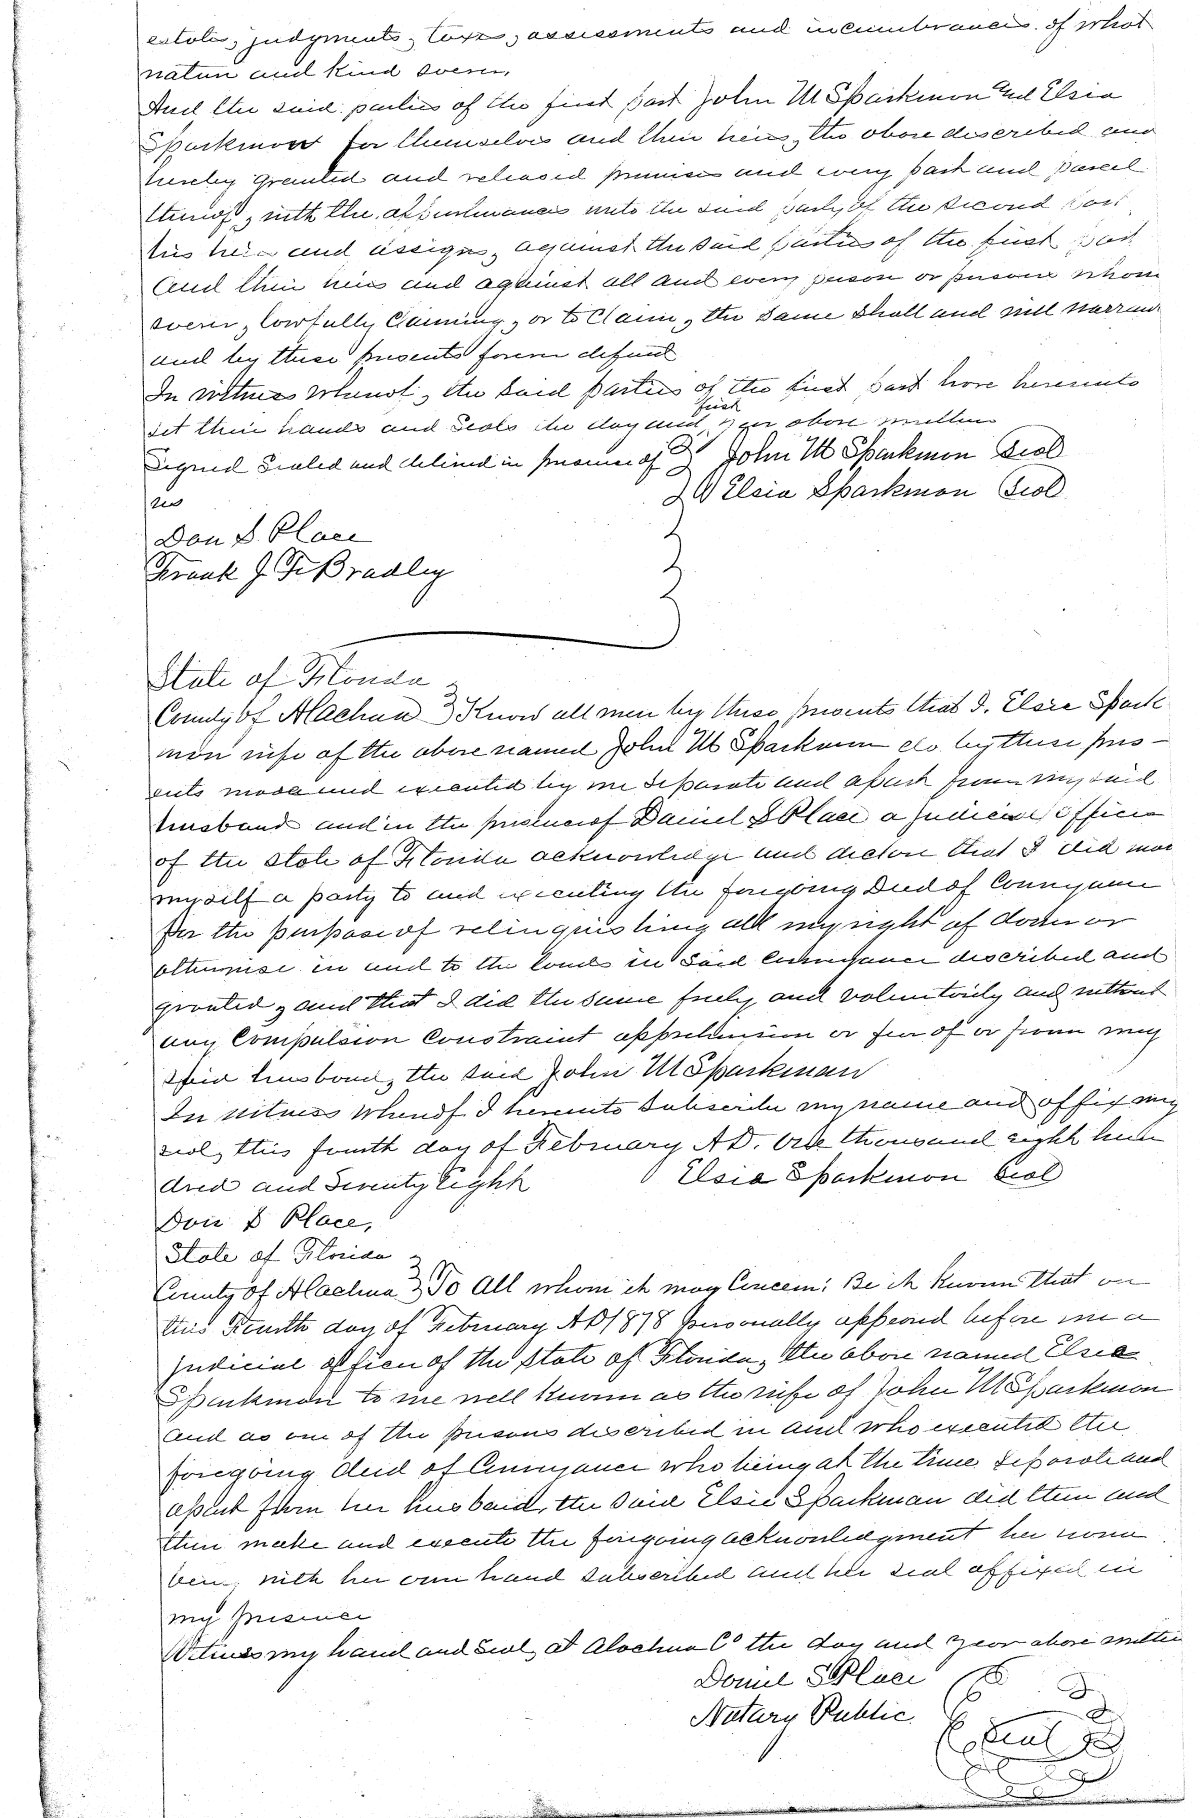 estate, judgments, taxes, assessments and incumbrances of what
nature and kind soever,
And the said parties of the first part John M Sparkman and Elsia
Sparkman for themselves and their heirs, the above described and
hereby granted and released premises and every part and parcel
thereof, with the appurtenances unto the said party of the second part
his heirs and assigns, against the said parties of the first part
And their heirs and against all and every person or persons whom
soever, lawfully Claiming, or to Claim, the same shall and will warrant
and by these presents forever defend
In witness whereof, the said parties of the first part have hereunto
set their hands and seals the day and first year above written
Signed Sealed and delivered in presence of John M Sparkman Seal
us Elsia Sparkman Seal
Dan S. Place
Frank J. Bradley
State of Florida
County of Alachua Know all men by these presents that I. Elsie Spark
man wife of the above named John M Sparkman do by these pres-
ents made and executed by me separate and apart from my said
husband and in the presence of Daniel S Place a Judicial Officer
of the State of Florida acknowledge and declare that I did make
myself a party to and executing the foregoing Deed of Conveyance
for the purpose of relinquishing all my right of dower or
otherwise in and to the lands in said Conveyance described and
granted, and that I did the same freely and voluntarily and without
any Compulsion Constraint apprehension or fear of or from my
said husband, the said John M Sparkman
In witness whereof I hereunto Subscribe my name and affix my
seal, this fourth day of February A.D. One thousand eight hun
dred and Seventy Eight Elsia Sparkman Seal
Dan S Place,
State of Florida
County of Alachua To All whom it may Concern: Be it known that on
this Fourth day of February A D 1878 personally appeared before me a
judicial officer of the State of Florida, the above named Elsie
Sparkman to me well known as the wife of John M Sparkman
and as one of the persons described in and who executed the
foregoing deed of Conveyance who being at the time separate and
apart from her husband, the said Elsie Sparkman did then and
there make and execute the foregoing acknowledgment her name
being with her own hand subscribed and her seal affixed in
my presence
Witness my hand and seal, at Alachua Co the day and year above written
Daniel S Place
Notary Public. Seal